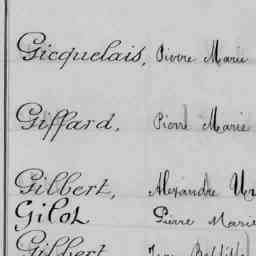 Gicquelais, Pierre Marie
Giffard, Pierre Marie
Gilbert, Alexandre
Gilot Pierre Marie
Gilbert Jean Baptiste